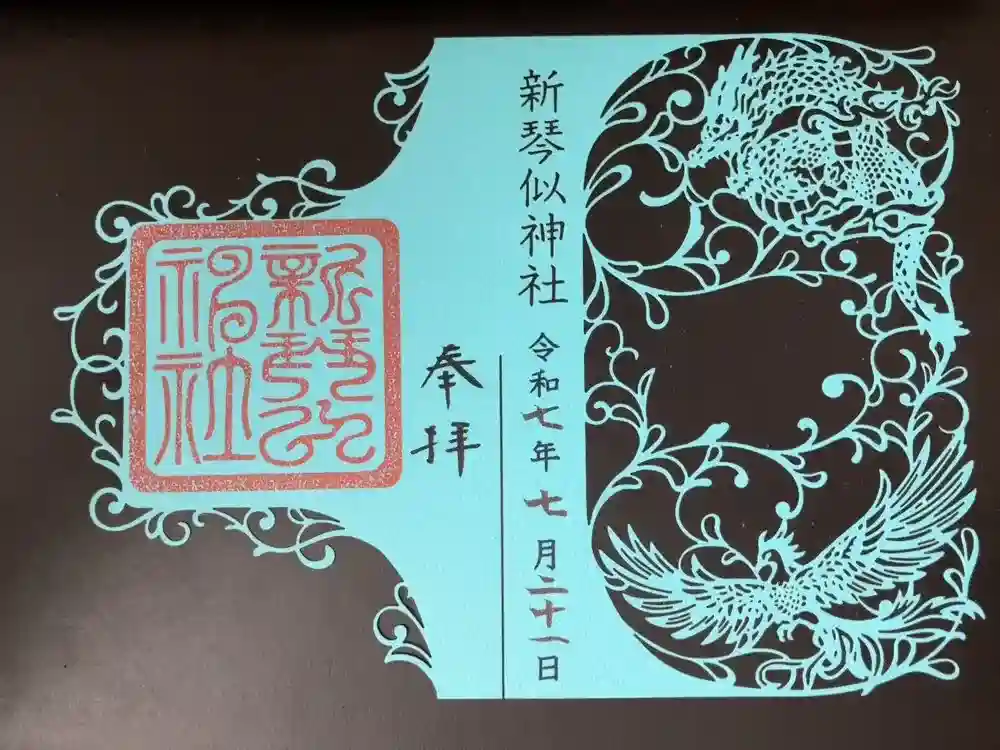 新琴似神社
令和七年七月二十一日
奉拝
新琴似
神社